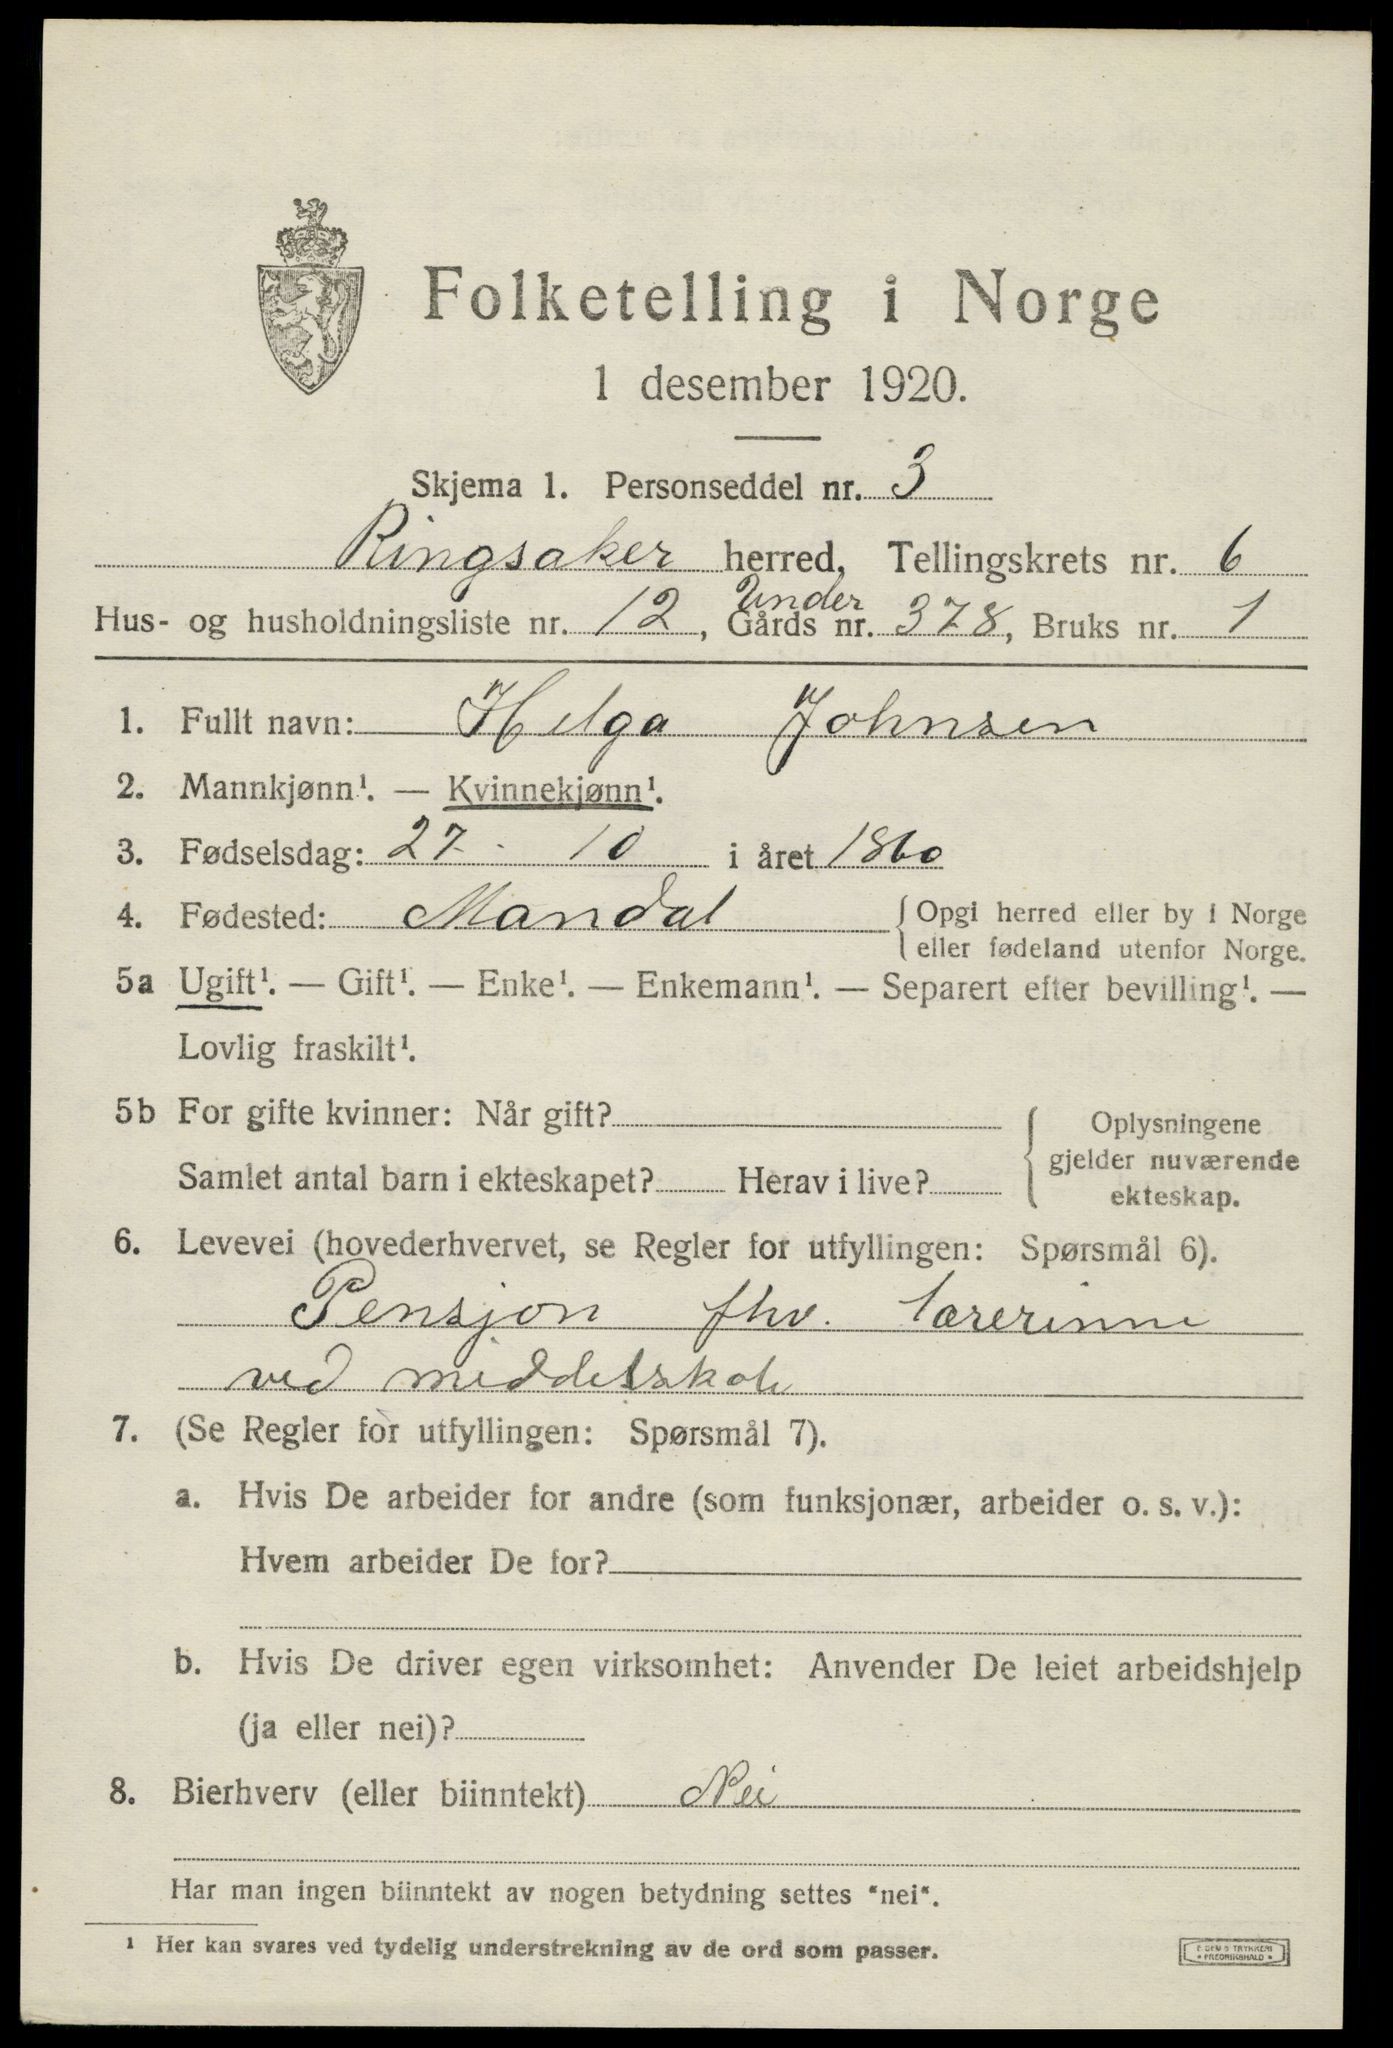 Folketelling i Norge
1 desember 1920.
Skjema 1. Personseddel nr. 3
Ringsaker herred, Tellingskrets nr. 6
Under
Hus- og husholdningsliste nr. 12, Gårds nr. 378, Bruks nr. 1
1. Fullt navn: Helga Johnsen
2. Mannkjønn¹. — Kvinnekjønn¹.
3. Fødselsdag: 27 - 10 i året 1860
4. Fødested: Mandal { Opgi herred eller by i Norge
eller fødeland utenfor Norge.
5a Ugift¹. — Gift¹. — Enke¹. — Enkemann¹. — Separert efter bevilling¹. —
Lovlig fraskilt¹.
5b For gifte kvinner: Når gift?
Samlet antal barn i ekteskapet? Herav i live?
{ Oplysningene
gjelder nuværende
ekteskap.
6. Levevei (hovederhvervet, se Regler for utfyllingen: Spørsmål 6).
Pensjon fhv. lærerinne
ved middelskole
7. (Se Regler for utfyllingen: Spørsmål 7).
a. Hvis De arbeider for andre (som funksjonær, arbeider o. s. v.):
Hvem arbeider De for?
b. Hvis De driver egen virksomhet: Anvender De leiet arbeidshjelp
(ja eller nei)?
8. Bierhverv (eller biinntekt) Nei
Har man ingen biinntekt av nogen betydning settes "nei".
¹ Her kan svares ved tydelig understrekning av de ord som passer.
TRYKKERI
FREDRIKSHALD